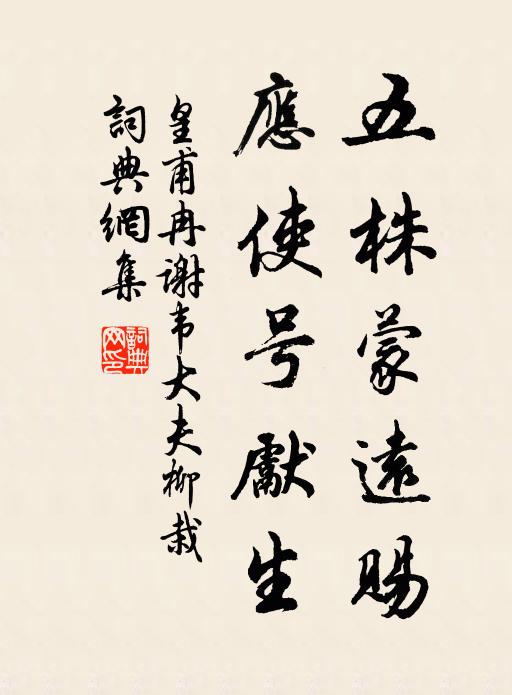 五株蒙遠賜
應使号獻生
皇甫冉谢韦大夫柳栽
詞典網集
詞典网印